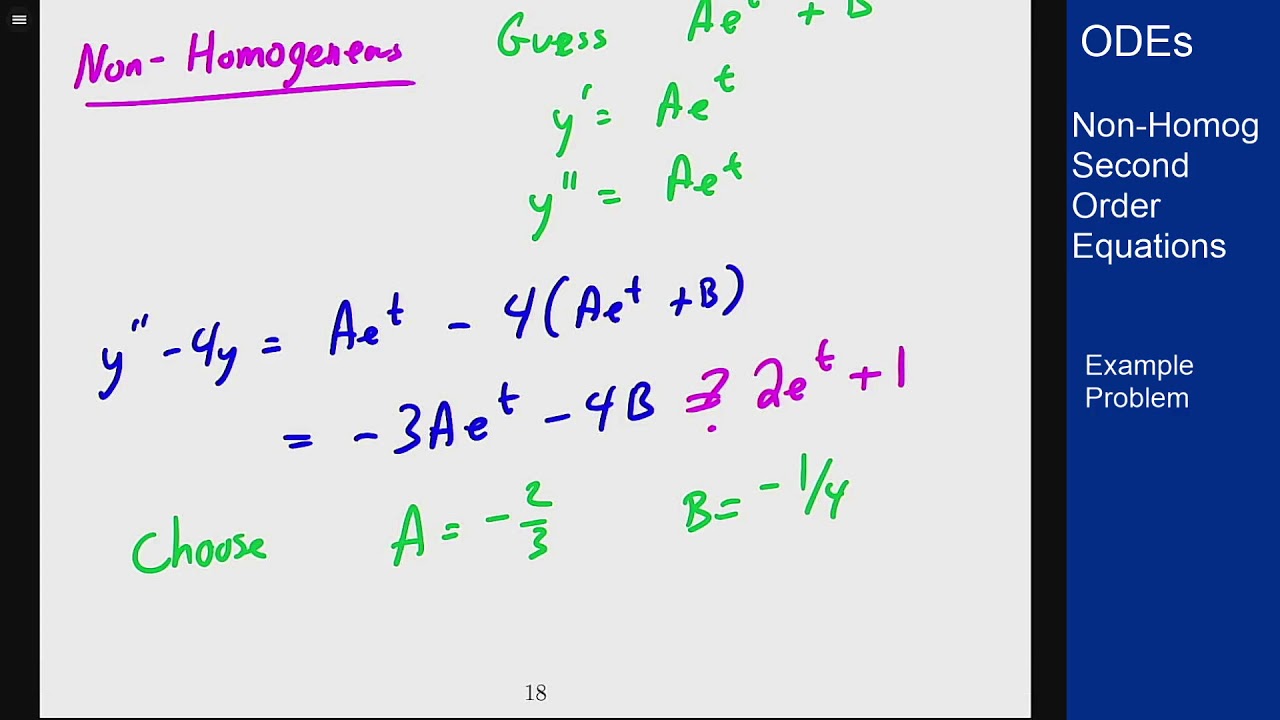 Non-Homogeneous
Guess Ae^t + B
y' = Ae^t
y'' = Ae^t
y'' - 4y = Ae^t - 4(Ae^t + B)
= -3Ae^t - 4B =? 2e^t + 1
Choose A = -2/3 B = -1/4
18
ODEs
Non-Homog
Second
Order
Equations
Example
Problem